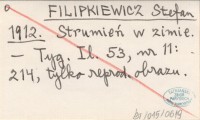 FILIPKIEWICZ Stefan
1912. Strumień w zimie.
– Tyg. Il. 53, nr 11:
214, tylko reprod. obrazu.